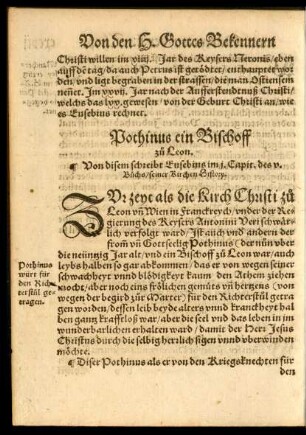 Von den H. Gottes Bekennern
Christi willen im xiiij. Jar des Keysers Neronis/ eben
auff dē tag/ da auch Petrus ist getödtet/ enthauptet wor
den/ vnd ligt begraben in der strassen/ die man Ostiensem
nenet. Im xxxvij. Jar nach der Aufferstendenuß Christi/
welchs das lxx. gewesen/ von der Geburt Christi an/ wie
es Eusebius rechnet.
Pothinus ein Bischoff
zů Leon.
¶ Von disem schreibt Eusebius im j. Capit. des v.
Bůchs/ seiner Kirchen History.
ZVr zeyt als die Kirch Christi zů
Leon vñ Vien in Franckreych/ vnder der Re
gierung des Keysers Antonini Veri schwär
lich verfolgt ward/ Ist auch vnd andern der
from̃ vñ Gottselig Pothinus (der nůn vber
die neüntzig Jar alt/ vnd ein Bischoff zů Leon war/ auch
leybs halben so gar abkommen/ das er von wegen seiner
schwachheyt vnnd blödigkeyt kaum den Athem ziehen
mocht/ aber noch eins frölichen gemüts vñ hertzens (von
wegen der begird zur Marter) für den Richterstůl getra
gen worden/ dessen leib beyde alters vnnd kranckheyt hal
ben gantz krafftloß war/ aber die seel vnd das leben in im
wunderbarlichen erhalten ward/ damit der Herr Jesus
Christus durch die selbig herrlich sigen vnnd vberwinden
möchte.
¶ Diser Pothinus als er von den Kriegsknechten für
den
Pothinus
würt für
den Rich-
terstůl ge-
tragen.